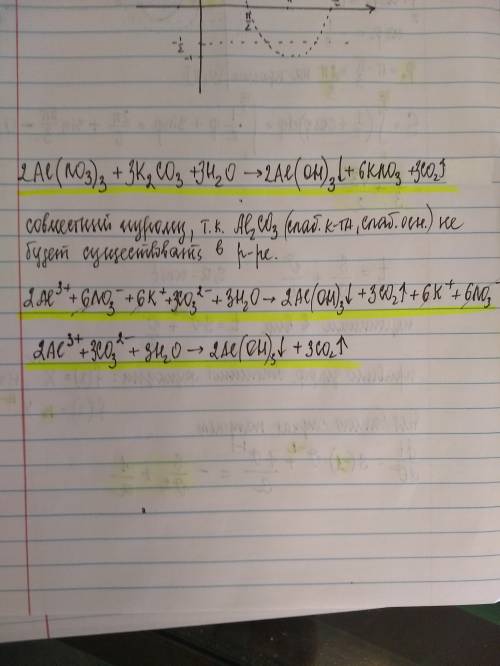 π/2
-1/2
-1
2Al(NO₃)₃ + 3K₂CO₃ + 3H₂O → 2Al(OH)₃↓ + 6KNO₃ + 3CO₂↑
совместный гидролиз, т.к. Al₂CO₃ (слаб. к-та, слаб. осн.) не
будет существовать в р-ре.
2Al³⁺ + 6NO₃⁻ + 6K⁺ + 3CO₃²⁻ + 3H₂O → 2Al(OH)₃↓ + 3CO₂↑ + 6K⁺ + 6NO₃⁻
2Al³⁺ + 3CO₃²⁻ + 3H₂O → 2Al(OH)₃↓ + 3CO₂↑